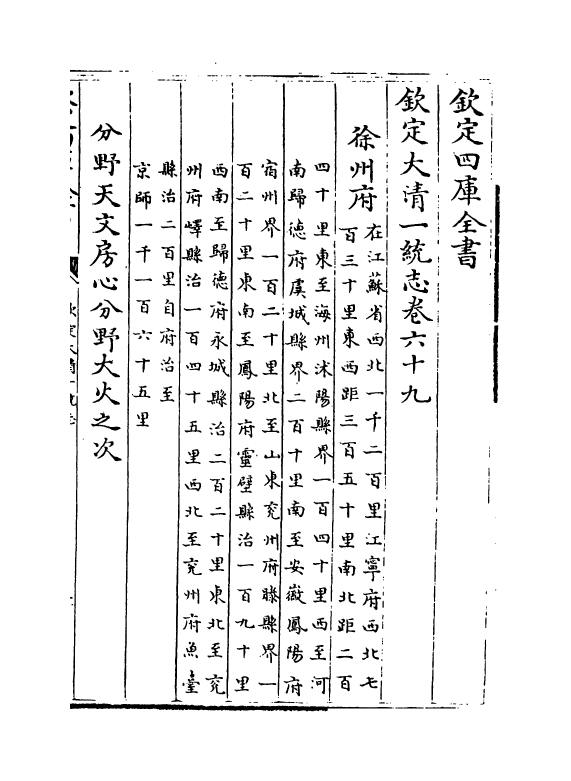 欽定四庫全書
欽定大清一統志卷六十九
徐州府
在江蘇省西北一千二百里江寧府西北七
百三十里東西距三百五十里南北距二百
四十里東至海州沭陽縣界一百四十里西至河
南歸德府虞城縣界二百十里南至安徽鳳陽府
宿州界一百二十里北至山東兖州府滕縣界一
百二十里東南至鳳陽府靈壁縣治一百九十里
西南至歸德府永城縣治二百二十里東北至兖
州府嶧縣治一百四十五里西北至兖州府魚臺
縣治二百里自府治至
京師一千一百六十五里
分野天文房心分野大火之次